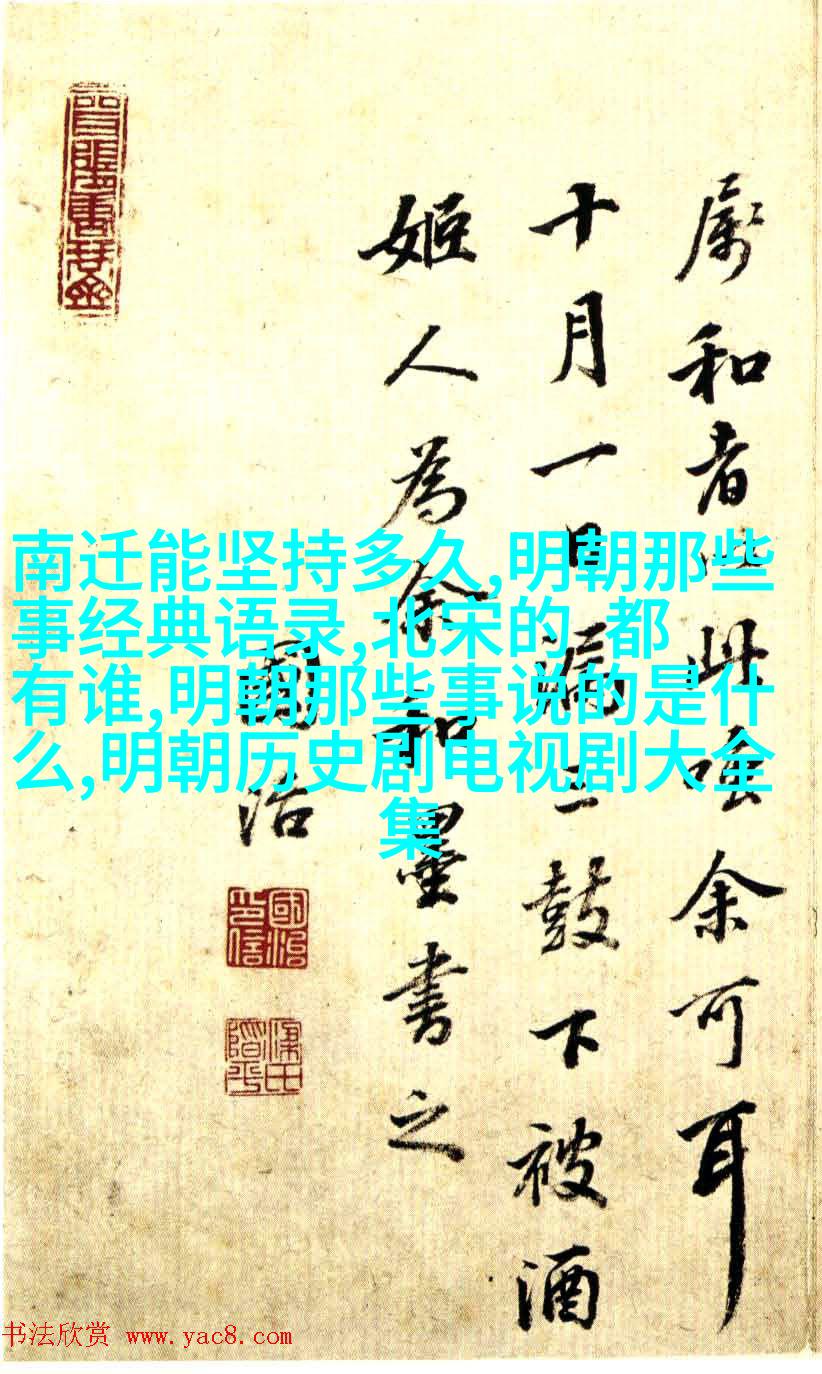 属和者以此唤余可耳
十月一日漏二鼓下被酒
姬人為余和墨書之
國治
國治印信
南迁能坚持多久,明朝那些
事经典语录,北宋的 都
有谁,明朝那些事说的是什
么,明朝历史剧电视剧大全
集
书法欣赏 www.yac8.com